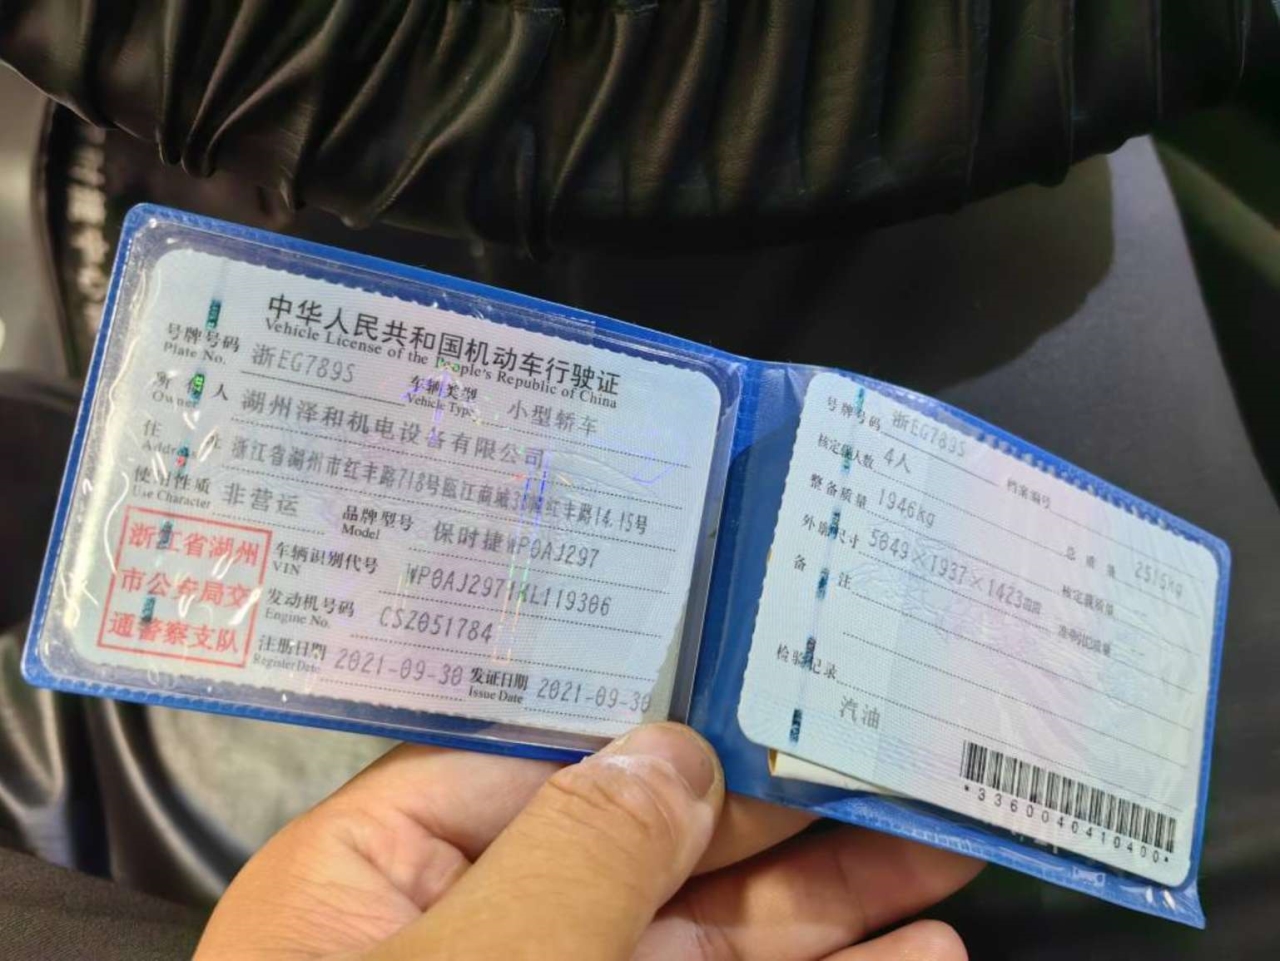 中华人民共和国机动车行驶证
Vehicle License of the People's Republic of China
号牌号码 浙EG7895 车辆类型 小型轿车
Plate No. Vehicle Type
所有人 湖州泽和机电设备有限公司
Owner
住址 浙江省湖州市红丰路718号 商城 红丰路14.15号
Address
使用性质 非营运 品牌型号 保时捷WP0AJ297
Use Character Model
浙江省湖州
市公安局交
通警察支队
车辆识别代号 WP0AJ2971 L119306
VIN
发动机号码 CSZ051784
Engine No.
注册日期 2021-09-30 发证日期 2021-09-30
Register Date Issue Date
号牌号码 浙EG7895 档案编号
核定载人数 4人 总质量 2515kg
整备质量 1946kg 核定载质量
外廓尺寸 5049×1937×1423mm 准牵引总质量 --
备注
检验记录
汽油
*3360040410400*